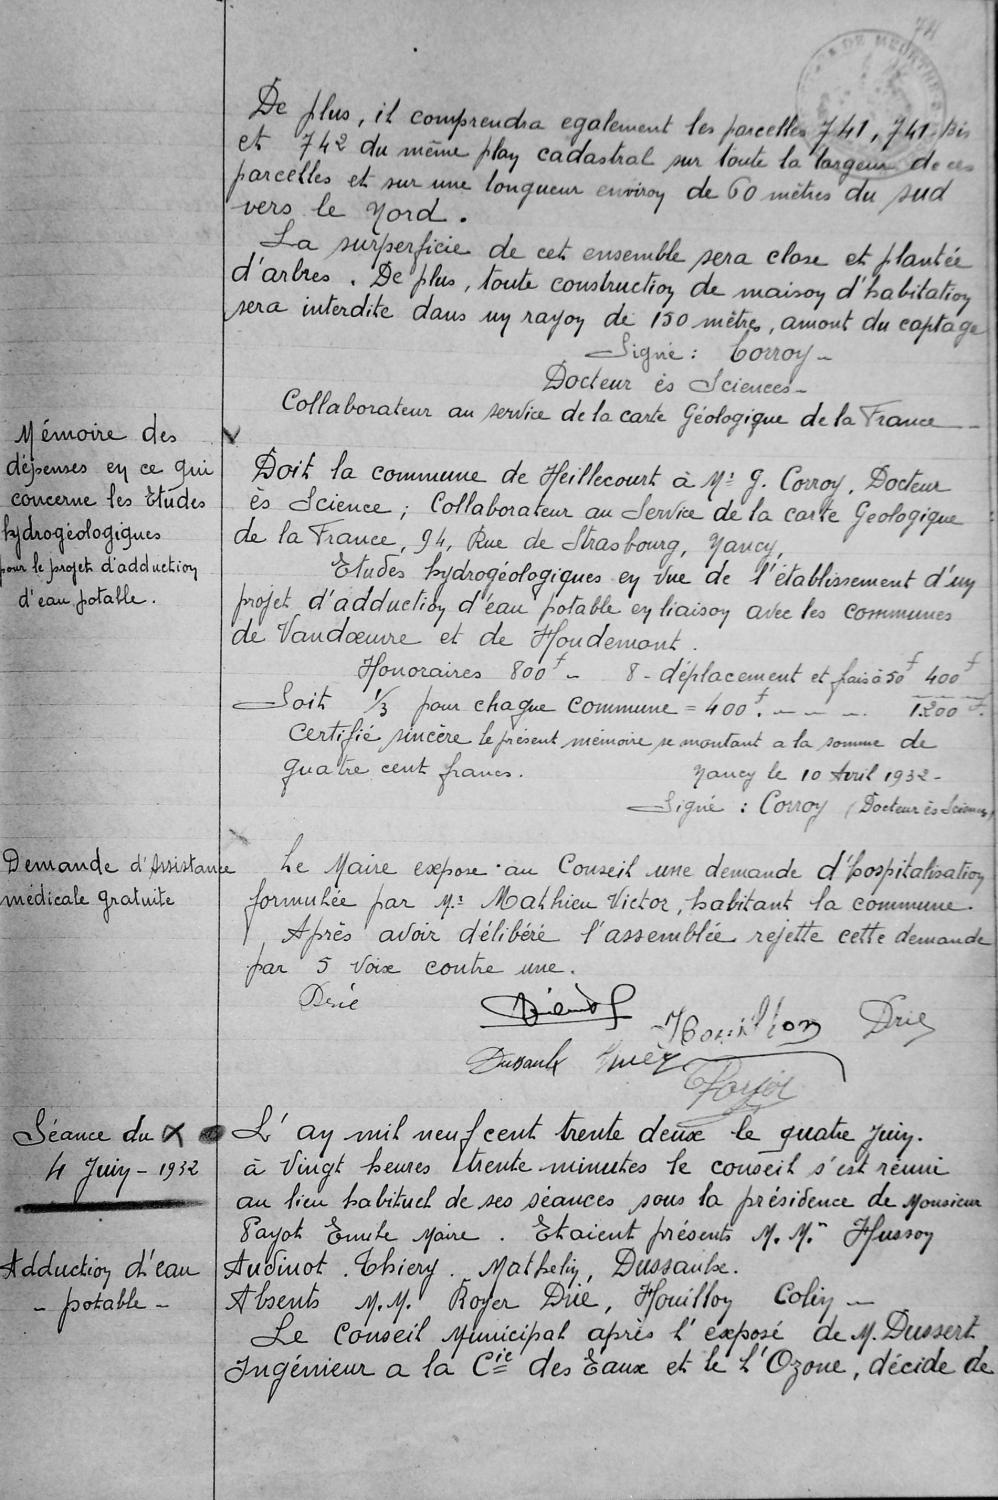 74
De plus, il comprendra egalement les parcelles 741, 741 bis
et 742 du même plan cadastral sur toute la largeur de ces
parcelles et sur une longueur environ de 60 mètres du sud
vers le Nord.
La surperficie de cet ensemble sera close et plantée
d'arbres. De plus, toute construction de maison d'habitation
sera interdite dans un rayon de 150 mètres, amont du captage
Signé : Corroy -
Docteur ès Sciences -
Collaborateur au service de la carte Géologique de la France -
Mémoire des
dépenses en ce qui
concerne les Etudes
hydrogéologiques
pour le projet d'adduction
d'eau potable.
Doit la commune de Heillecourt à Mr G. Corroy, Docteur
ès Science ; Collaborateur au Service de la carte Geologique
de la France, 94, Rue de Strasbourg, Nancy,
Etudes hydrogéologiques en vue de l'établissement d'un
projet d'adduction d'eau potable en liaison avec les communes
de Vandœuvre et de Houdemont.
Honoraires 800f - 8 - déplacement et frais à 50f 400f
Soit 1/3 pour chaque commune = 400f. - - - 1200f.
Certifié sincère le présent mémoire se montant a la somme de
quatre cent francs. Nancy le 10 Avril 1932 -
Signé : Corroy (Docteur ès Sciences)
Demande d'Assistance
médicale gratuite
Le Maire expose au Conseil une demande d'hospitalisation
formulée par Mr Mathieu Victor, habitant la commune.
Après avoir délibéré l'assemblée rejette cette demande
par 5 voix contre une.
Drié Houillon Drié
Dussaulx
Séance du
4 Juin - 1932
L'an mil neuf cent trente deux le quatre Juin.
à vingt heures trente minutes le conseil s'est réuni
au lieu habituel de ses séances sous la présidence de Monsieur
Payot Emile Maire. Etaient présents M.M. Husson
Adduction d'eau
- potable -
Audinot. Thiery. Mathelin, Dussaulx.
Absents M.M. Royer Drié, Houillon Colin -
Le Conseil Municipal après l'exposé de M. Dussert
Ingénieur a la Cie des Eaux et le l'Ozone, décide de